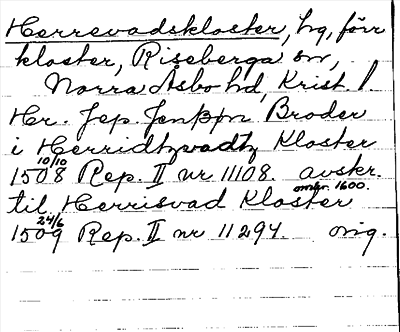 Herrevadskloster, hg, förr
kloster, Riseberga sn,
Norra Åsbo hd, Krist. l.
Hr. Jep. Jenßpn Broder
i Herridtzvadtz Kloster
10/10
1508 Rep. II nr 11108. avskr.
omkr. 1600.
til Herrisvad Kloster
24/6
1509 Rep. II nr 11294. orig.